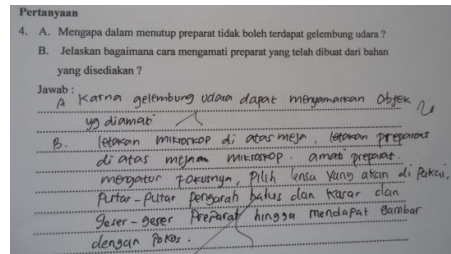 Pertanyaan
4. A. Mengapa dalam menutup preparat tidak boleh terdapat gelembung udara ?
B. Jelaskan bagaimana cara mengamati preparat yang telah dibuat dari bahan
yang disediakan ?
Jawab :
A Karna gelembung udara dapat menyamarkan Objek
yg diamati
B. letakan mikroskop di atas meja, letakan preparat
di atas meja mikroskop. amati preparat.
mengatur fokusnya, Pilih lensa yang akan di Pakai,
Putar-Putar pengarah halus dan kasar dan
geser-geser Preparat hingga mendapat gambar
dengan Fokos.